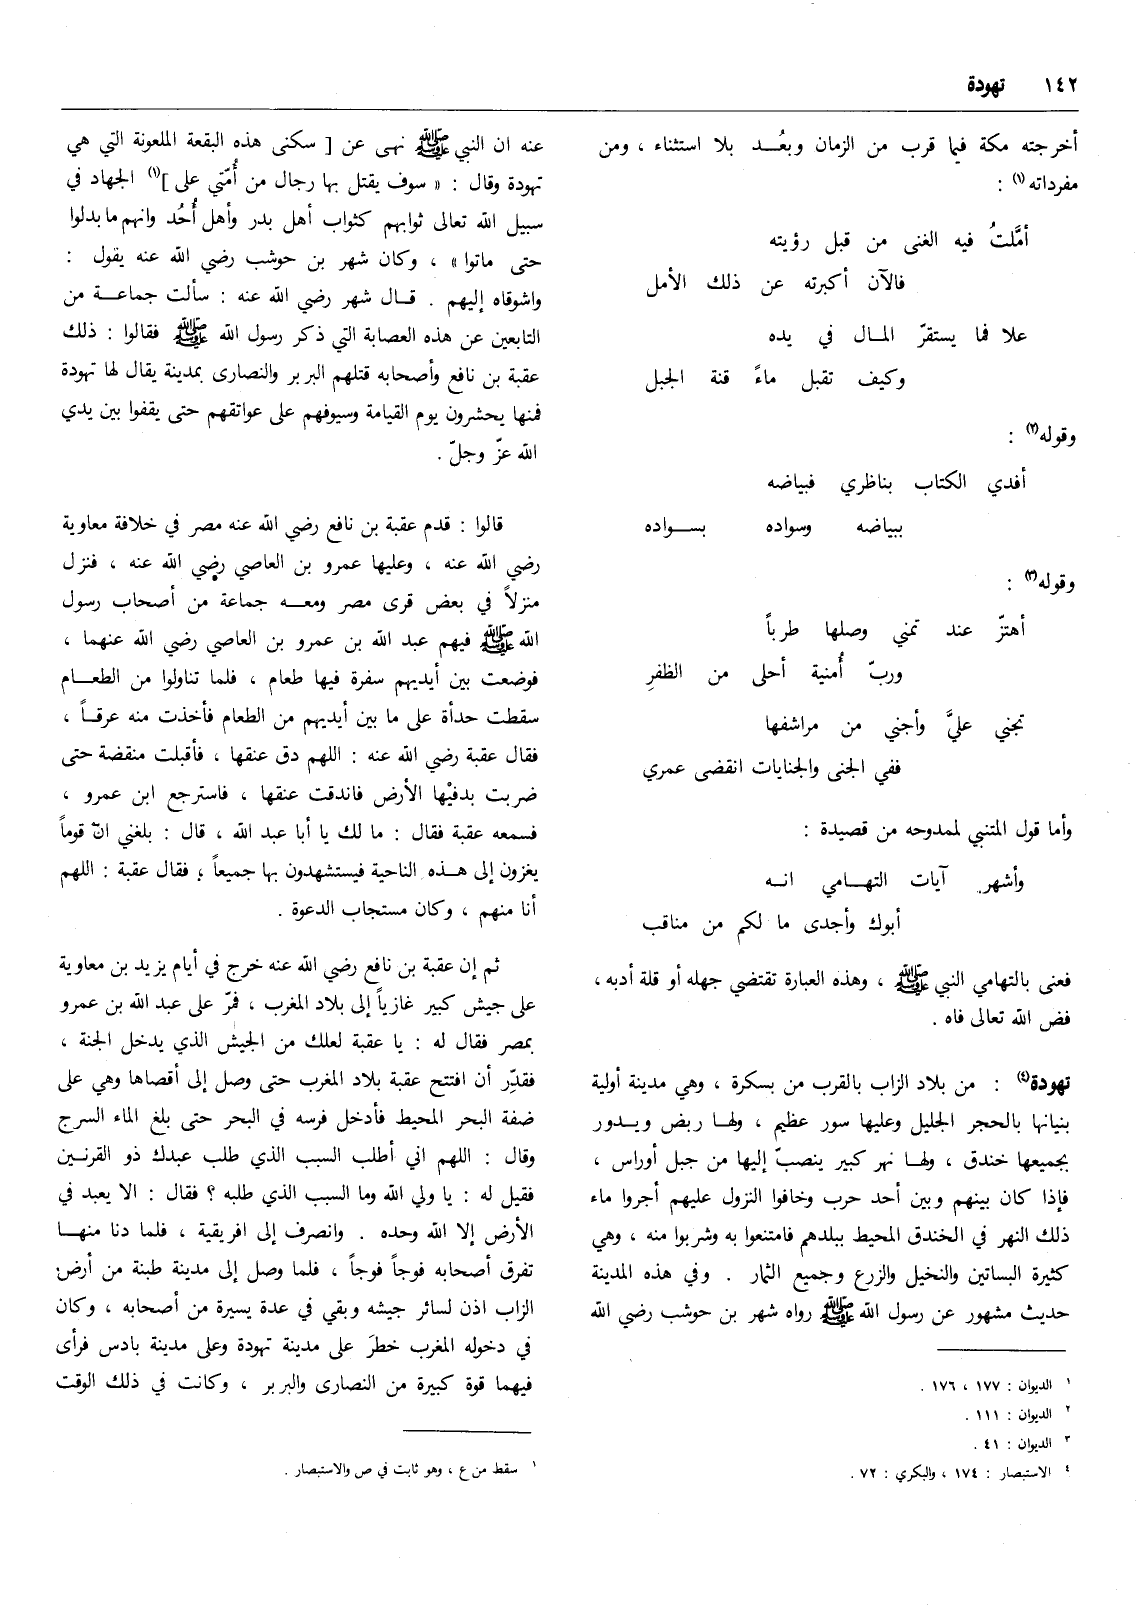 ١٤٢ تهودة
أخرجته مكة فيما قرب من الزمان وبعُـد بلا استثناء ، ومن
مفرداته(١) :
أمَّلتُ فيه الغنى من قبل رؤيته
فالآن أكبرته عن ذلك الأمل
علا فما يستقرّ المـال في يده
وكيف تقبل ماءً قنة الجبل
وقوله(٢) :
أفدي الكتاب بناظري فبياضه
ببياضه وسواده بسـواده
وقوله(٣) :
أهتزّ عند تمني وصلها طرباً
وربّ أُمنية أحلى من الظفرِ
تجني عليَّ وأجني من مراشفها
ففي الجنى والجنايات انقضى عمري
وأما قول المتنبي لممدوحه من قصيدة :
وأشهر آيات التهـامي انـه
أبوك وأجدى ما لكم من مناقب
فعنى بالتهامي النبي ﷺ ، وهذه العبارة تقتضي جهله أو قلة أدبه ،
فض الله تعالى فاه .
تهودة(٤) : من بلاد الزاب بالقرب من بسكرة ، وهي مدينة أولية
بنيانها بالحجر الجليل وعليها سور عظيم ، ولهـا ربض ويـدور
بجميعها خندق ، ولهـا نهر كبير ينصبّ إليها من جبل أوراس ،
فإذا كان بينهم وبين أحد حرب وخافوا النزول عليهم أجروا ماء
ذلك النهر في الخندق المحيط ببلدهم فامتنعوا به وشربوا منه ، وهي
كثيرة البساتين والنخيل والزرع وجميع الثمار . وفي هذه المدينة
حديث مشهور عن رسول الله ﷺ رواه شهر بن حوشب رضي الله
١ الديوان : ١٧٧ ، ١٧٦ .
٢ الديوان : ١١١ .
٣ الديوان : ٤١ .
٤ الاستبصار : ١٧٤ ، والبكري : ٧٢ .
عنه ان النبي ﷺ نهى عن [ سكنى هذه البقعة الملعونة التي هي
تهودة وقال : « سوف يقتل بها رجال من أُمّتي على ](١) الجهاد في
سبيل الله تعالى ثوابهم كثواب أهل بدر وأهل أُحُد وانهم ما بدلوا
حتى ماتوا » ، وكان شهر بن حوشب رضي الله عنه يقول :
واشوقاه إليهم . قـال شهر رضي الله عنه : سألت جماعـة من
التابعين عن هذه العصابة التي ذكر رسول الله ﷺ فقالوا : ذلك
عقبة بن نافع وأصحابه قتلهم البربر والنصارى بمدينة يقال لها تهودة
فمنها يحشرون يوم القيامة وسيوفهم على عواتقهم حتى يقفوا بين يدي
الله عزّ وجلّ .
قالوا : قدم عقبة بن نافع رضي الله عنه مصر في خلافة معاوية
رضي الله عنه ، وعليها عمرو بن العاصي رضي الله عنه ، فنزل
منزلاً في بعض قرى مصر ومعـه جماعة من أصحاب رسول
الله ﷺ فيهم عبد الله بن عمرو بن العاصي رضي الله عنهما ،
فوضعت بين أيديهم سفرة فيها طعام ، فلما تناولوا من الطعـام
سقطت حدأة على ما بين أيديهم من الطعام فأخذت منه عرقـاً ،
فقال عقبة رضي الله عنه : اللهم دق عنقها ، فأقبلت منقضة حتى
ضربت بدفيْها الأرض فاندقت عنقها ، فاسترجع ابن عمرو ،
فسمعه عقبة فقال : ما لك يا أبا عبد الله ، قال : بلغني انّ قوماً
يغزون إلى هـذه الناحية فيستشهدون بها جميعاً ، فقال عقبة : اللهم
أنا منهم ، وكان مستجاب الدعوة .
ثم إن عقبة بن نافع رضي الله عنه خرج في أيام يزيد بن معاوية
على جيش كبير غازياً إلى بلاد المغرب ، فمرّ على عبد الله بن عمرو
بمصر فقال له : يا عقبة لعلك من الجيش الذي يدخل الجنة ،
فقدِّر أن افتتح عقبة بلاد المغرب حتى وصل إلى أقصاها وهي على
ضفة البحر المحيط فأدخل فرسه في البحر حتى بلغ الماء السرج
وقال : اللهم اني أطلب السبب الذي طلب عبدك ذو القرنـين
فقيل له : يا ولي الله وما السبب الذي طلبه ؟ فقال : الا يعبد في
الأرض إلا الله وحده . وانصرف إلى افريقية ، فلما دنا منهـا
تفرق أصحابه فوجاً فوجاً ، فلما وصل إلى مدينة طبنة من أرض
الزاب اذن لسائر جيشه وبقي في عدة يسيرة من أصحابه ، وكان
في دخوله المغرب خطرَ على مدينة تهودة وعلى مدينة بادس فرأى
فيهما قوة كبيرة من النصارى والبربر ، وكانت في ذلك الوقت
١ سقط من ع ، وهو ثابت في ص والاستبصار .